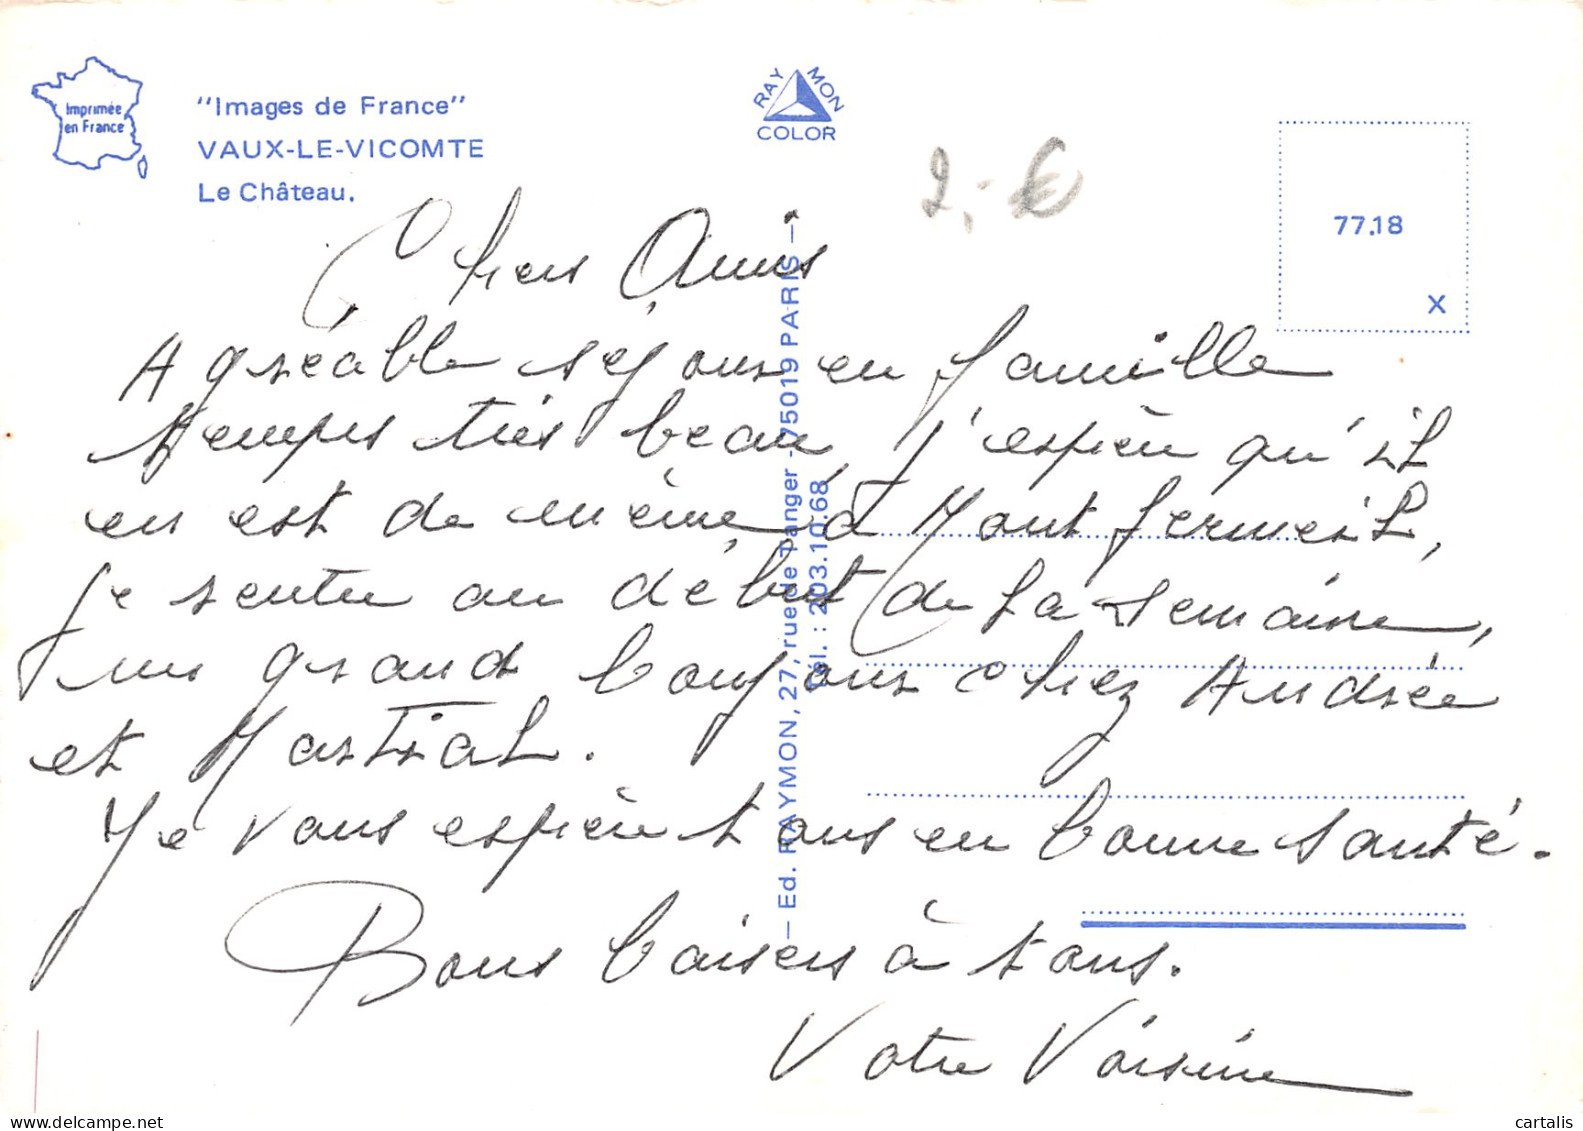 Imprimée
en France
"Images de France"
VAUX-LE-VICOMTE
Le Château.
RAYMON
COLOR
2,-€
77.18
X
Chers Amis
Agréable séjour en famille
temps très beau, j'espère qu'il
en est de même à Montfermeil,
je rentre au début de la semaine,
un grand bonjour chez Andrée
et Martial.
Je vous espère tous en bonne santé.
Bons baisers à tous.
Votre Voisine
— Ed. RAYMON, 27, rue de Tanger - 75019 PARIS —
Tél. : 203.10.68
delcampe.net
cartalis